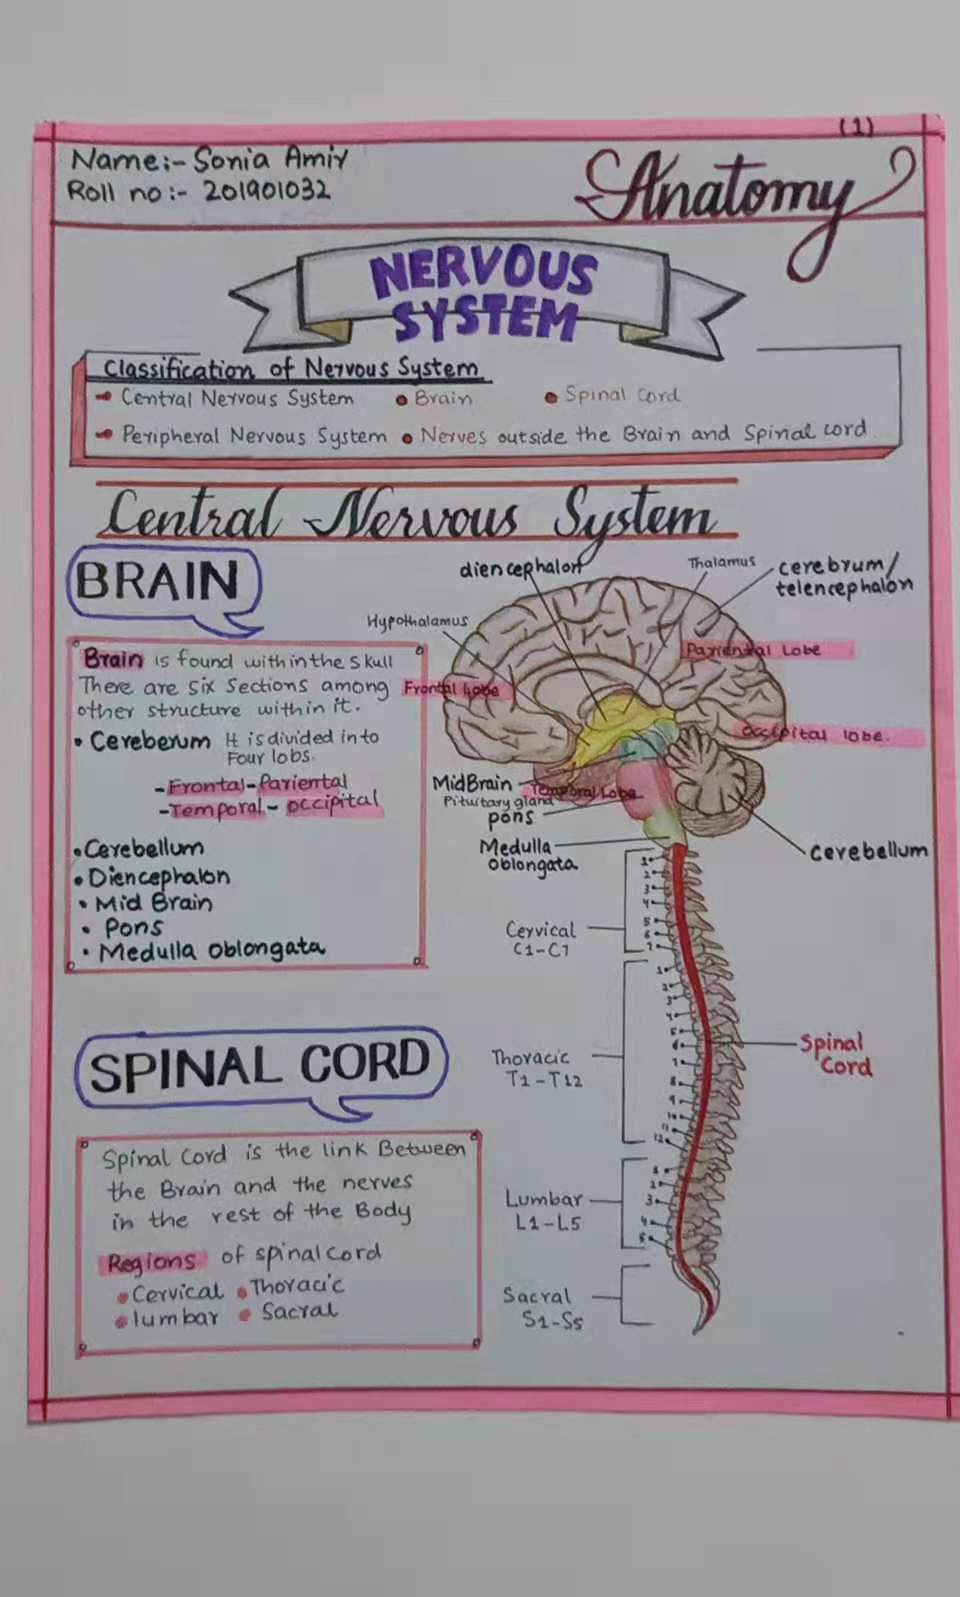 (1)
Name:- Sonia Amir
Roll no:- 201901032
Anatomy
NERVOUS
SYSTEM
Classification of Nervous System
Central Nervous System • Brain • Spinal Cord
Peripheral Nervous System • Nerves outside the Brain and Spinal cord
Central Nervous System
BRAIN
Brain is found within the skull
There are six sections among
other structure within it.
• Cereberum It is divided into
Four lobs.
-Frontal-Pariental
-Temporal- occipital
• Cerebellum
• Diencephalon
• Mid Brain
• Pons
• Medulla oblongata
diencephalon
Thalamus
cerebrum/
telencephalon
Hypothalamus
Pariental Lobe
Frontal Lobe
occipital lobe.
MidBrain
Temporal Lobe
Pituitary gland
pons
Medulla
oblongata
cerebellum
Cervical
C1-C7
1
2
3
4
5
6
7
Thoracic
T1-T12
1
2
3
4
5
6
7
8
9
10
11
12
Spinal
Cord
Lumbar
L1-L5
1
2
3
4
5
Sacral
S1-S5
SPINAL CORD
Spinal Cord is the link Between
the Brain and the nerves
in the rest of the Body
Regions of spinal cord
• Cervical • Thoracic
• lumbar • Sacral